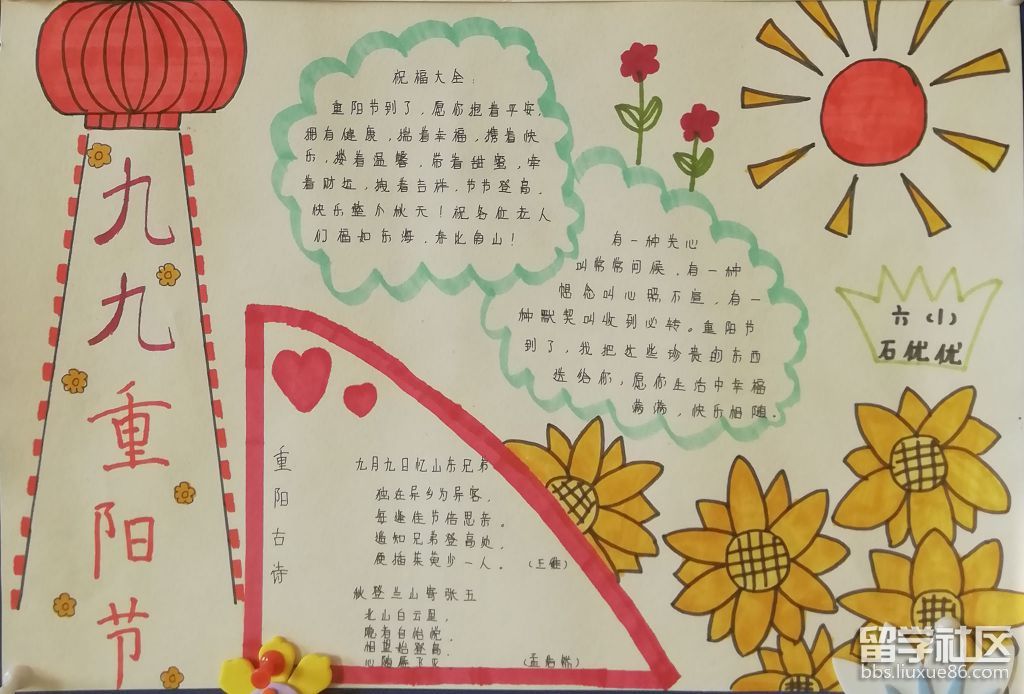 九九重阳节
祝福大全：
重阳节到了，愿你抱着平安，
拥有健康，揣着幸福，携着快
乐，搂着温馨，带着甜蜜，牵
着财运，拽着吉祥，节节登高，
快乐整个秋天！祝各位老人
们福如东海，寿比南山！
有一种关心
叫常常问候，有一种
想念叫心照不宣，有一
种默契叫收到必转。重阳节
到了，我把这些珍贵的东西
送给你，愿你生活中幸福
满满，快乐相随。
六（1）
石优优
重阳古诗
九月九日忆山东兄弟
独在异乡为异客，
每逢佳节倍思亲。
遥知兄弟登高处，
遍插茱萸少一人。（王维）
秋登兰山寄张五
北山白云里，
隐者自怡悦。
相望始登高，
心随雁飞灭（孟浩然）
留学社区
bbs.liuxue86.com